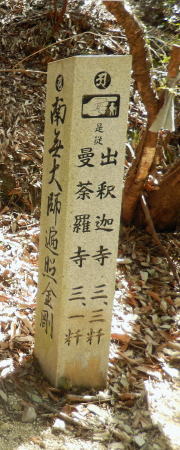 是従
出釈迦寺 三、三粁
曼荼羅寺 三、一粁
南無大師遍照金剛